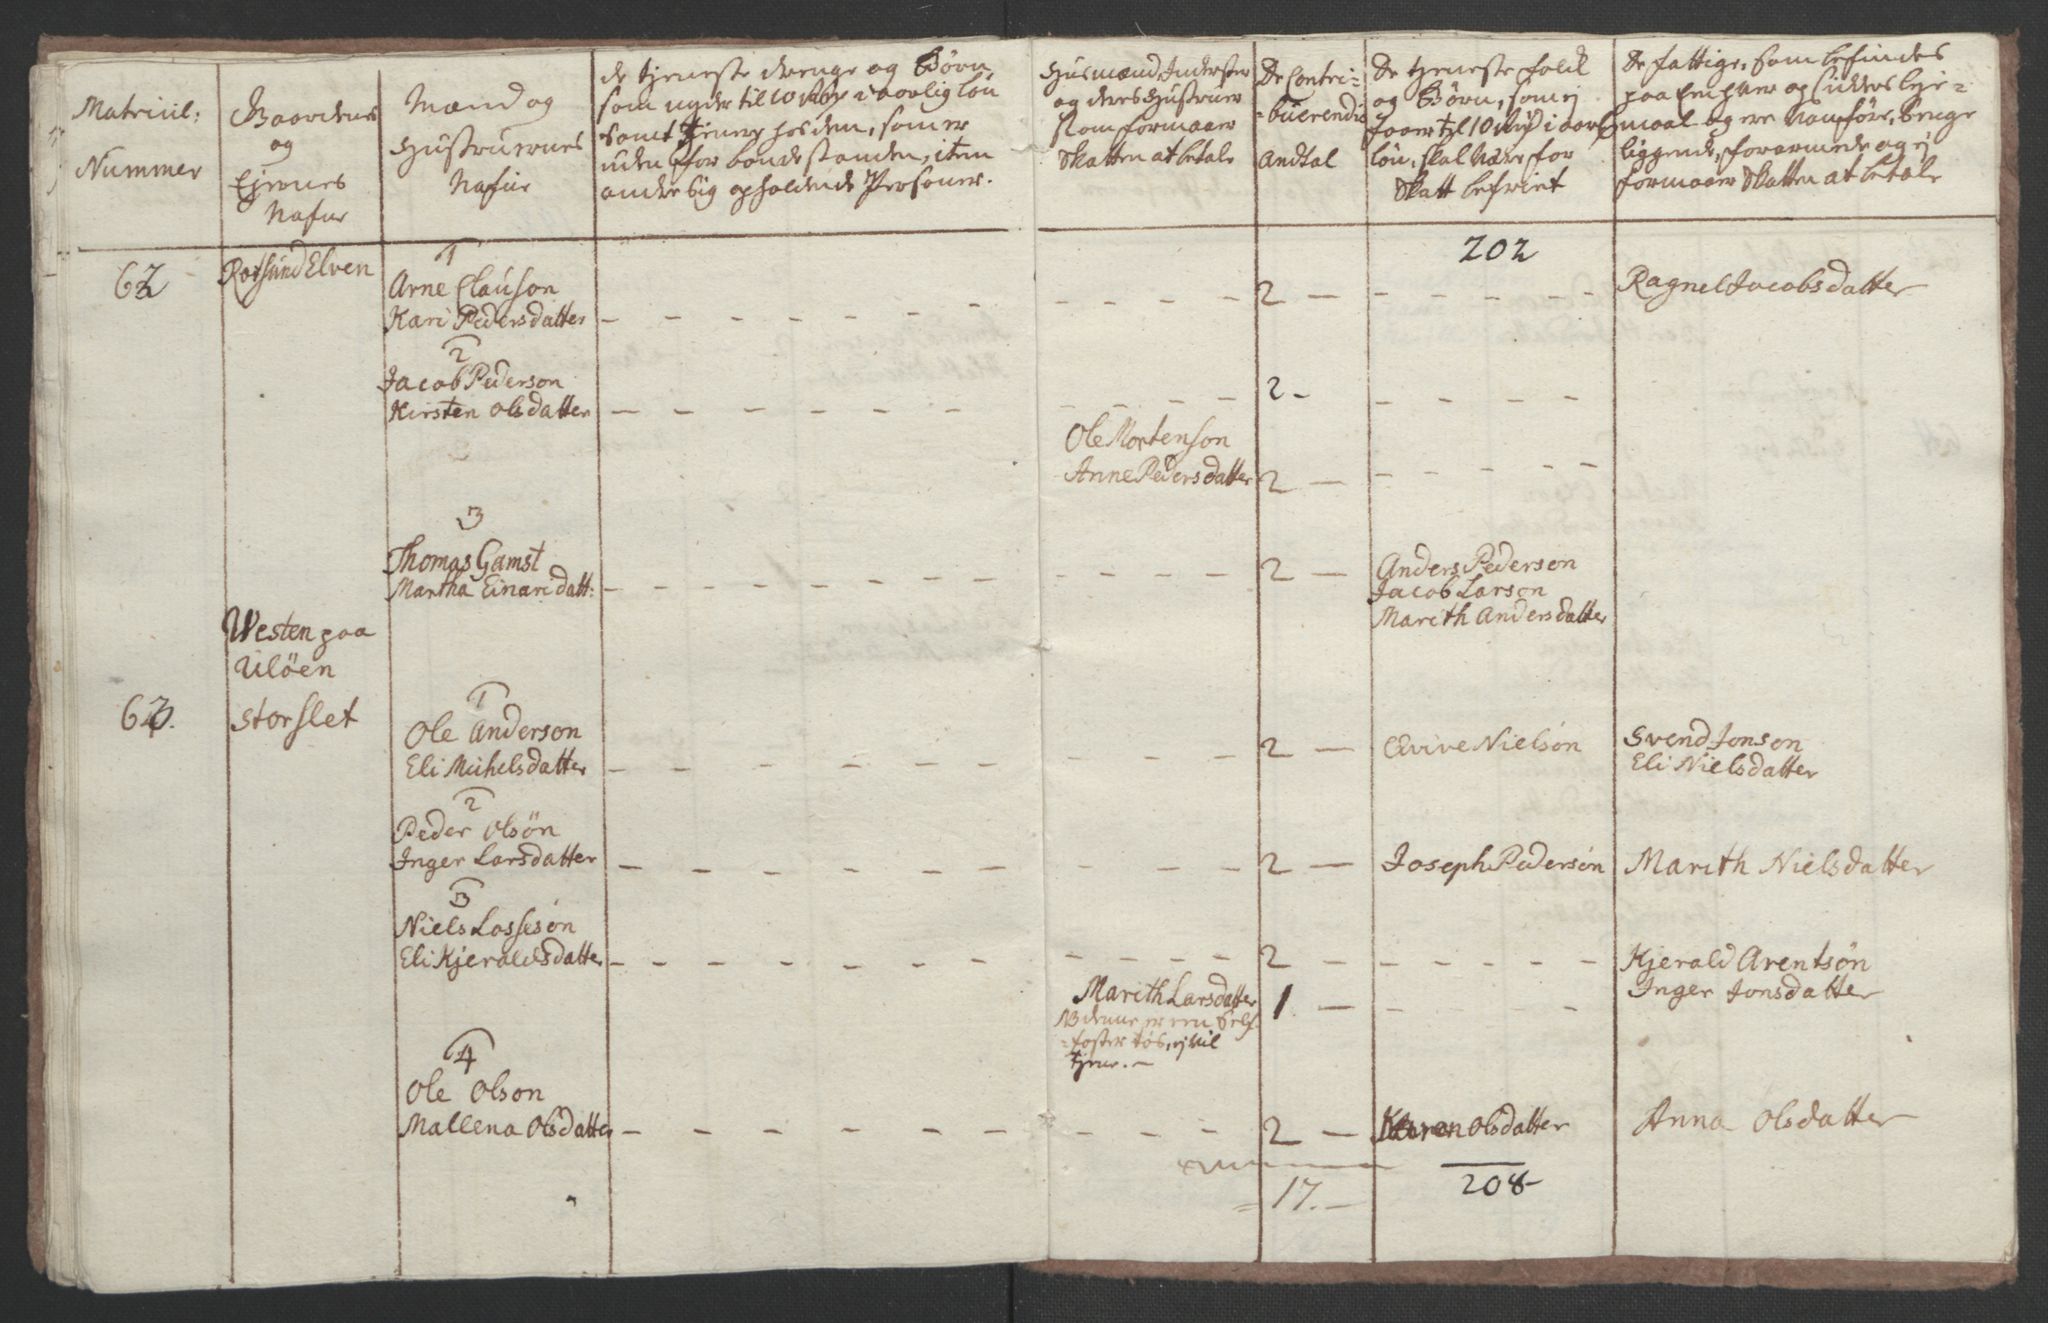 Matricul:
Nummer
Gaardenes
og
Ejernes
Nafne
Mænd og
Hustruernes
Nafne
de tjeneste drenge og Børn
som nyder til 10 i aarlig løn
samt tjener hos dem, som er
uden for bondestanden, item
andre sig opholdende Personer.
Huusmænd, Inderster
og deres Hustruer
som formaaer
Skatten at betale
De Contri-
-buerendis
Andtal
De tjeneste folk
og Børn, som ej
faaer til 10 i aarl
løn, skal være for
Skatt befriet
De fattige, som befindes
paa Enhver og Sidders leje-
maal og ere Vanføre, Senge
liggende, forarmede og ej
formaaer Skatten at betale
202
62
Rotsund Elven
1
Arne Clauson
Kari Pedersdatter - - - - - - - - - - 2 - - - - - - Ragnel Jacobsdatter
2
Jacob Pederson
Kirsten Olsdatter - - - - - - - - - - 2 - - - - - -
Ole Mortenson
Anne Pedersdatter 2 - - - - - -
3
Thomas Gamst
Martha Einarsdatt: - - - - - - - - - - 2 - Anders Pederson
Jacob Larson
Marith Andersdatter
Westen paa
Uløen
63.
Storslet
1
Ole Anderson
Eli Michelsdatter - - - - - - - - - - 2 - Qvive Nielsøn
Svend Jonson
Eli Nielsdatter
2
Peder Olsøn
Inger Larsdatter - - - - - - - - - - 2 - Joseph Pedersøn Marith Nielsdatter
3
Niels Lassesøn
Eli Kjeraldsdatter - - - - - - - - - - 2 - - - - - - Kjerald Arentsøn
Inger Jonsdatter
Marith Larsdatter 1. - - - - - -
NB denne er en
tøs, ej vil
tjene. -
4
Ole Olson
Mallena Olsdatter - - - - - - - - - - 2 - Karen Olsdatter Anna Olsdatter
= 17. -
208-